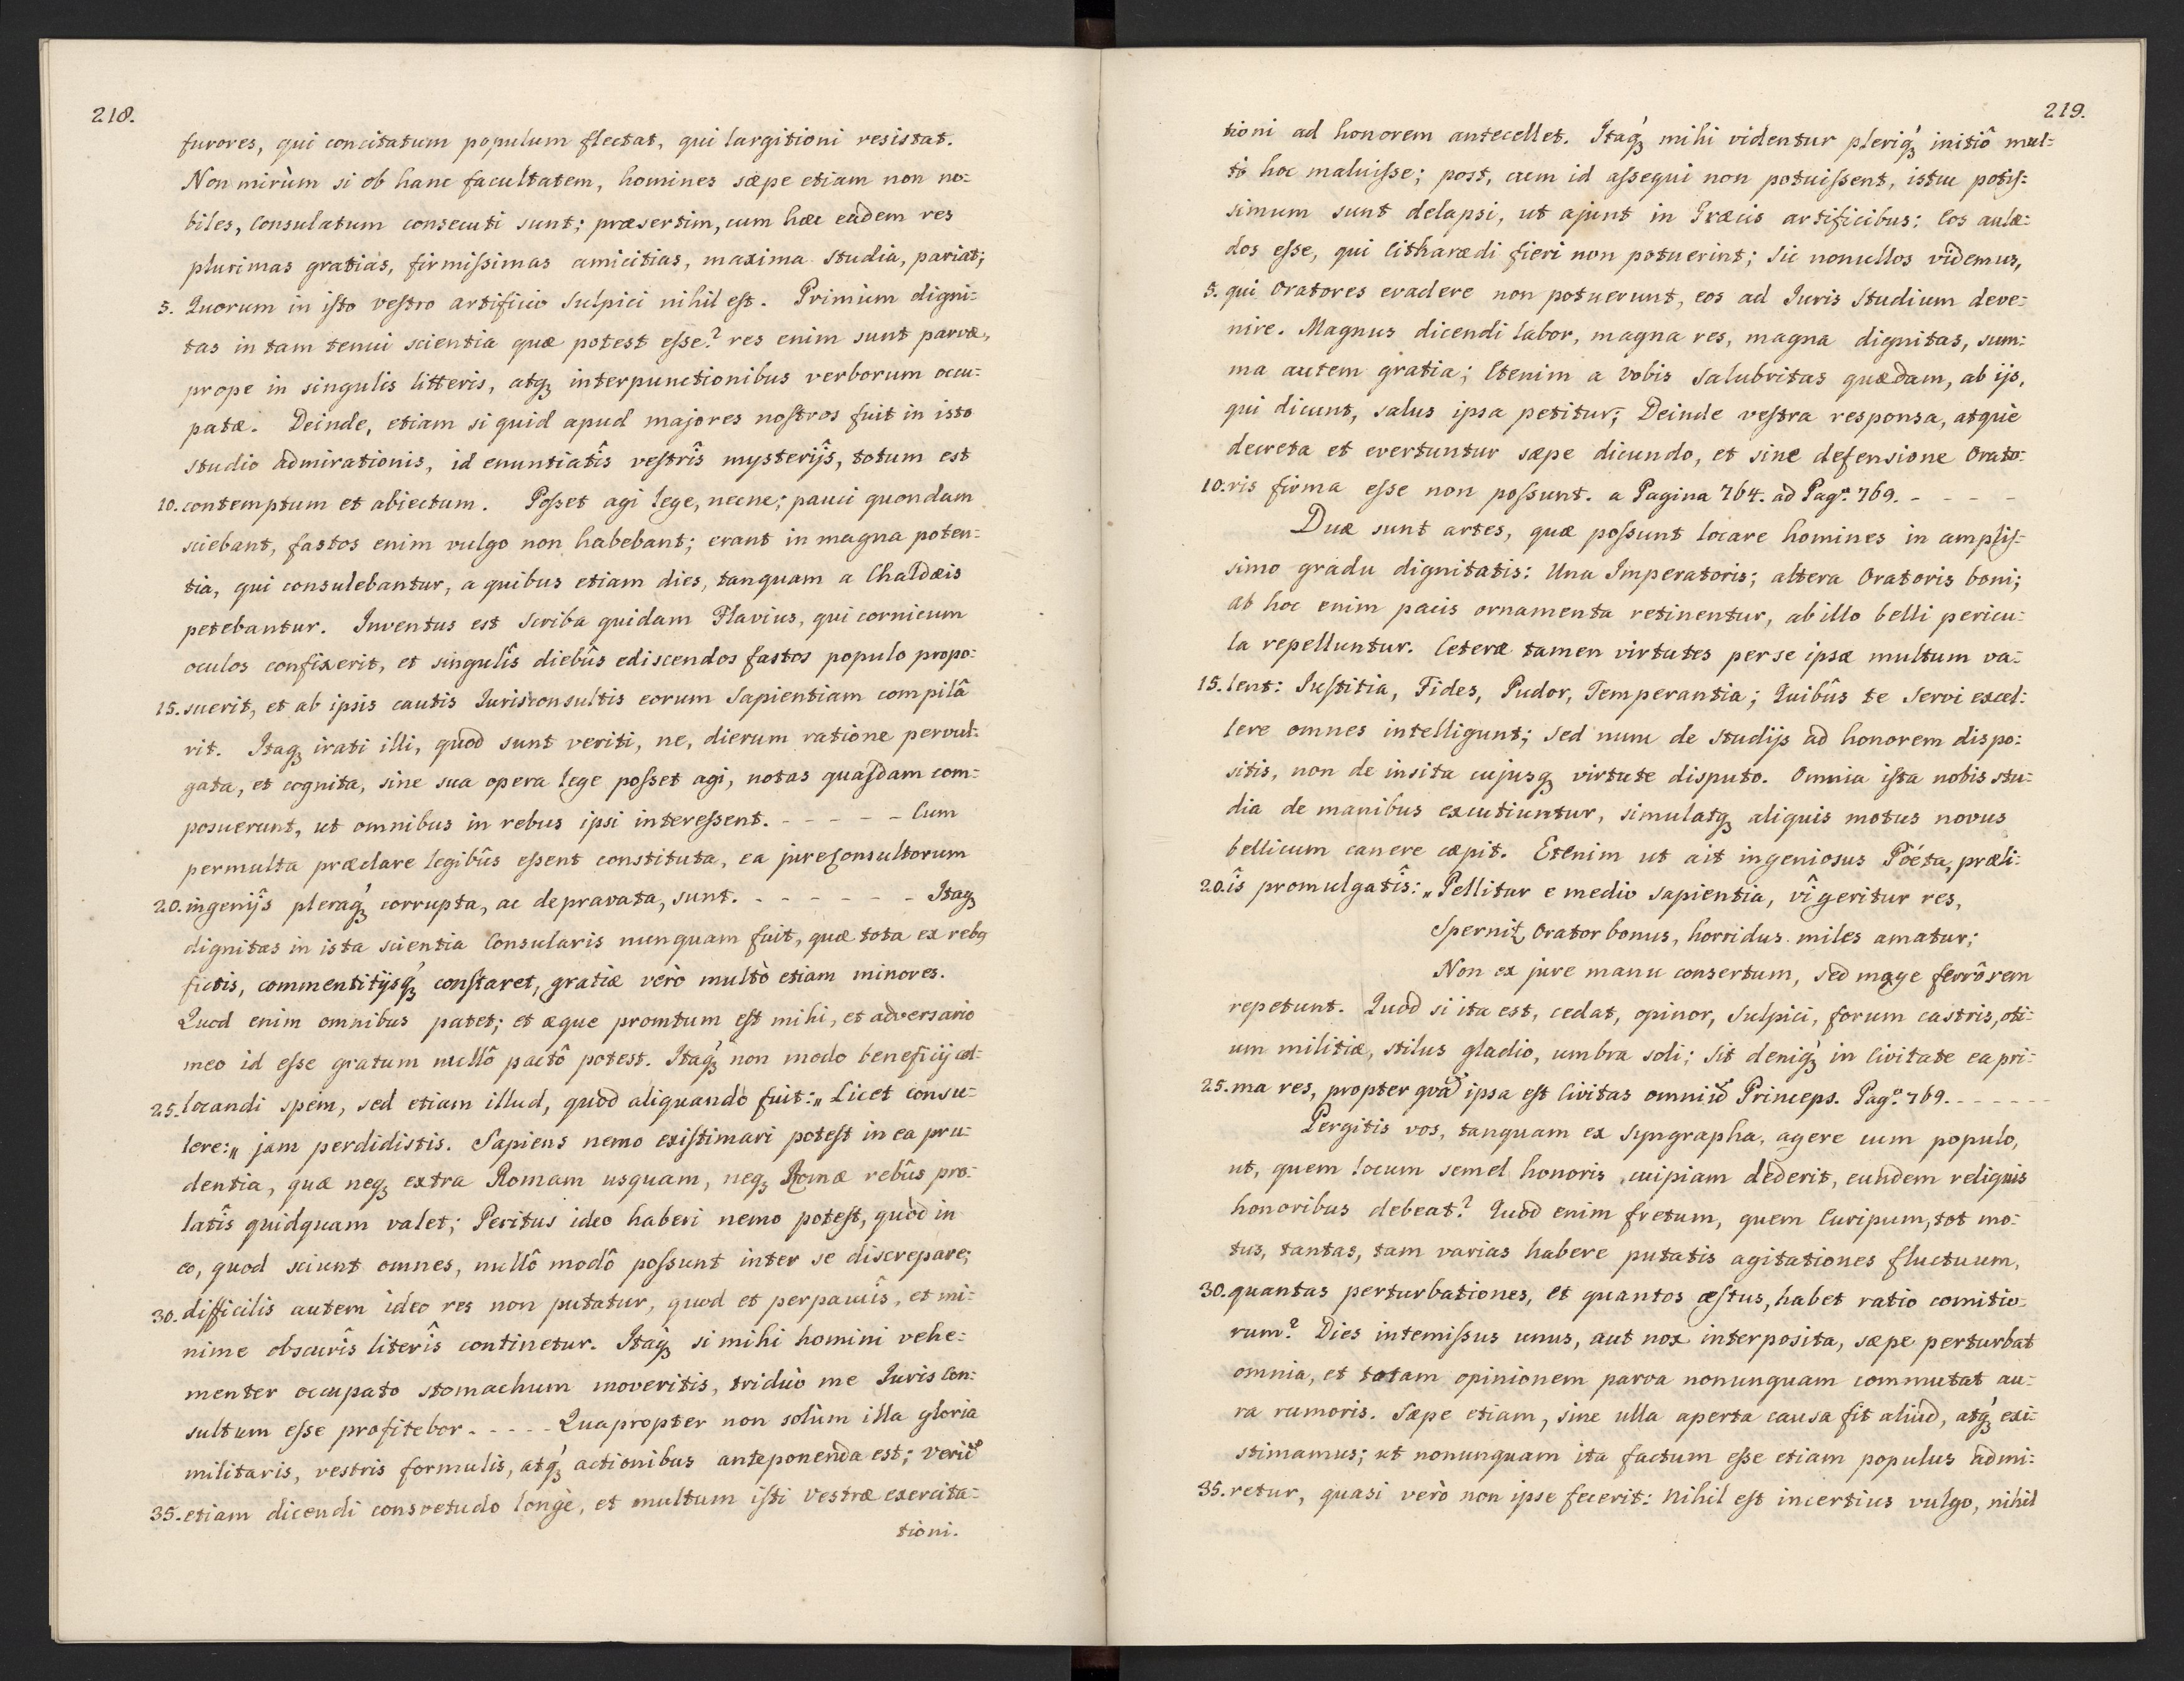 218.
furores, qui concitatum populum flectat, qui largitioni resistat.
Non mirùm si ob hanc facultatem, homines sæpe etiam non no:
biles, Consulatum consecuti sunt; præsertim, cum hæc eadem res
plurimas gratias, firmissimas amicitias, maxima studia, pariat;
5. Quorum in isto vestro artificio Sulpici nihil est. Primùm digni:
tas in tam tenui scientia quæ potest esse? res enim sunt parvæ,
prope in singulis litteris, atq; interpunctionibus verborum occu:
patæ. Deinde, etiam si quid apud majores nostros fuit in isto
studio admirationis, id enuntiatîs vestrîs mysterijs, totum est
10. contemptum et abiectum. Posset agi lege, necne; pauci quondam
sciebant, fastos enim vulgo non habebant; erant in magna poten:
tia, qui consulebantur, a quibus etiam dies, tanquam a Chaldæis
petebantur. Inventus est Scriba quidam Flavius, qui cornicum
oculos confixerit, et singulîs diebûs ediscendos fastos populo propo:
15. suerit, et ab ipsis cautis Jurisconsultis eorum Sapientiam compilâ
rit. Itaq; irati illi, quod sunt veriti, ne, dierum ratione pervul:
gata, et cognita, sine sua opera lege posset agi, notas quasdam com:
posuerunt, ut omnibus in rebus ipsi interessent. - - - - - Cum
permulta præclare legibûs essent constituta, ea jureconsultorum
20. ingenijs pleraq; corrupta, ac depravata, sunt. - - - - - - Itaq;
dignitas in ista scientia Consularis nunquam fuit, quæ tota ex reb9
fictis, commentitijsq; constaret, gratiæ verò multò etiam minores.
Quod enim omnibus patet; et æque promtum est mihi, et adversario
meo id esse gratum nullô pactô potest. Itaq; non modo beneficij col:
25. locandi spem, sed etiam illud, quod aliquando fuit:„ Licet consu:
lere:„ jam perdidistis. Sapiens nemo existimari potest in ea pru:
dentia, quæ neq; extra Romam usquam, neq; Romæ rebûs pro:
latîs quidquam valet; Peritus ideo haberi nemo potest, quòd in
eo, quod sciunt omnes, nullô modô possunt inter se discrepare;
30. difficilis autem ideo res non putatur, quod et perpaucîs, et mi:
nime obscurîs literîs continetur. Itaq; si mihi homini vehe:
menter occupato stomachum moveritis, triduò me Juris Con:
sultum esse profitebor - - - - - Quapropter non solùm illa gloria
militaris, vestris formulis, atq; actionibus anteponenda est; veru͠
35. etiam dicendi consvetudo longè, et multum isti vestræ exercita:
tioni.
219.
tioni ad honorem antecellet. Itaq; mihi videntur pleriq; initiô mul:
tò hoc maluisse; post, cum id assequi non potuissent, istuc potis:
simum sunt delapsi, ut ajunt in Græcis artificibus: Eos aulæ:
dos esse, qui Citharædi fieri non potuerint; Sic nonullos videmus,
5. qui Oratores evadere non potuerunt, eos ad Juris Studium deve:
nire. Magnus dicendi labor, magna res, magna dignitas, sum:
ma autem gratia; Etenim a Vobis Salubritas quædam, ab ijs,
qui dicunt, salus ipsa petitur; Deinde vestra responsa, atque
decreta et evertuntur sæpe dicundo, et sine defensione Orato:
10. ris firma esse non possunt. a Pagina 764. ad Pag.ª 769. - - - -
Duæ sunt artes, quæ possunt locare homines in amplis:
simo gradu dignitatis: Una Imperatoris; altera Oratoris boni;
Ab hoc enim pacis ornamenta retinentur, ab illo belli pericu:
la repelluntur. Ceteræ tamen virtutes per se ipsæ multum va:
15. lent: Justitia, Fides, Pudor, Temperantia; Quibûs te Servi excel:
lere omnes intelligunt; Sed nunc de Studijs ad honorem dispo:
sitis, non de insita cujusq; virtute disputo. Omnia ista nobis stu:
dia de manibus excutiuntur, simulatq; aliquis motus novus
bellicum canere cæpit. Etenim ut ait ingeniosus Pöéta, præli:
20. îs promulgatîs: „Pellitur e medio sapientia, vî geritur res,
Spernit͠ Orator bonus, horridus miles amatur;
Non ex jure manu consertum, sed mage ferrô rem
repetunt. Quòd si ita est, cedat, opinor, Sulpici, forum castris, oti:
um militiæ, stilus gladio, umbra soli; Sit deniq; in Civitate ea pri:
25. ma res, propter qva͠ ipsa est Civitas omniu͠ Princeps. Pag.ª 769. - - - - - -
Pergitis vos, tanquam ex Syngrapha, agere cum populo,
ut, quem locum semel honoris, cuipiam dederit, eundem reliquis
honoribus debeat? Quod enim fretum, quem Euripum, tot mo:
tus, tantas, tam varias habere putatis agitationes fluctuum,
30. quantas perturbationes, et quantos æstus, habet ratio comitio:
rum? Dies intemissus unus, aut nox interposita, sæpe perturbat
omnia, et totam opinionem parva nonunquam commutat au:
ra rumoris. Sæpe etiam, sine ulla aperta causa fit aliud, atq; exi:
stimamus; ut nonunquam ita factum esse etiam populus admi:
35. retur, quasi verò non ipse fecerit: Nihil est incertius vulgo, nihil